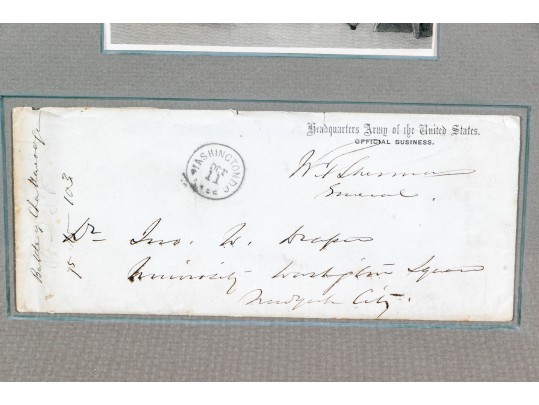 Headquarters Army of the United States.
OFFICIAL BUSINESS.
W T Sherman
General.
WASHINGTON D.C.
OCT
11
Dr Jno. W. Draper
University Washington Square
New York City.
Battle of Chattanooga
103